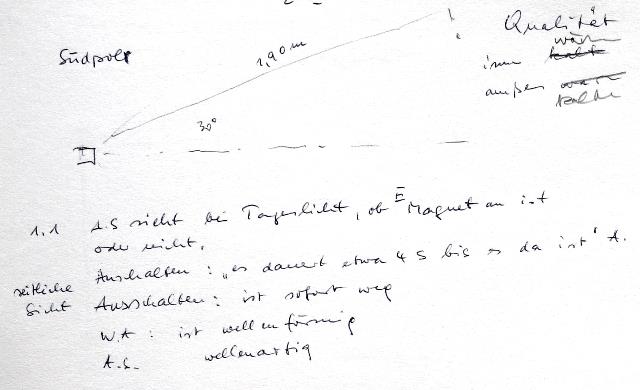 Qualität
Südpol
1,90 m
innen wärm kalt
außen warm kalt
30°
1.1 A.S sieht bei Tageslicht, ob E Magnet an ist
oder nicht.
seitliche Sicht
Anschalten: „es dauert etwa 4 s bis es da ist" A.
Ausschalten: ist sofort weg
W.A: ist wellenförmig
A.S. wellenartig